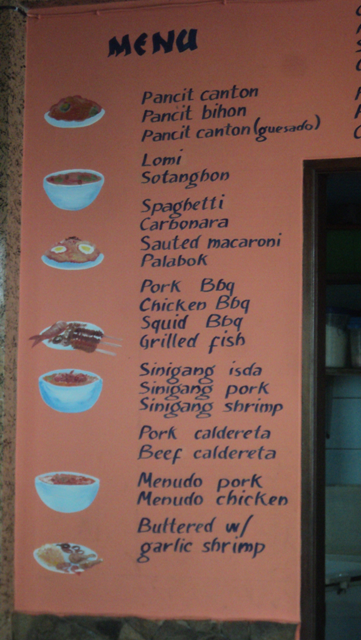 MENU
Pancit canton
Pancit bihon
Pancit canton (guesado)
Lomi
Sotanghon
Spaghetti
Carbonara
Sauted macaroni
Palabok
Pork Bbq
Chicken Bbq
Squid Bbq
Grilled fish
Sinigang isda
Sinigang pork
Sinigang shrimp
Pork caldereta
Beef caldereta
Menudo pork
Menudo chicken
Buttered w/
garlic shrimp